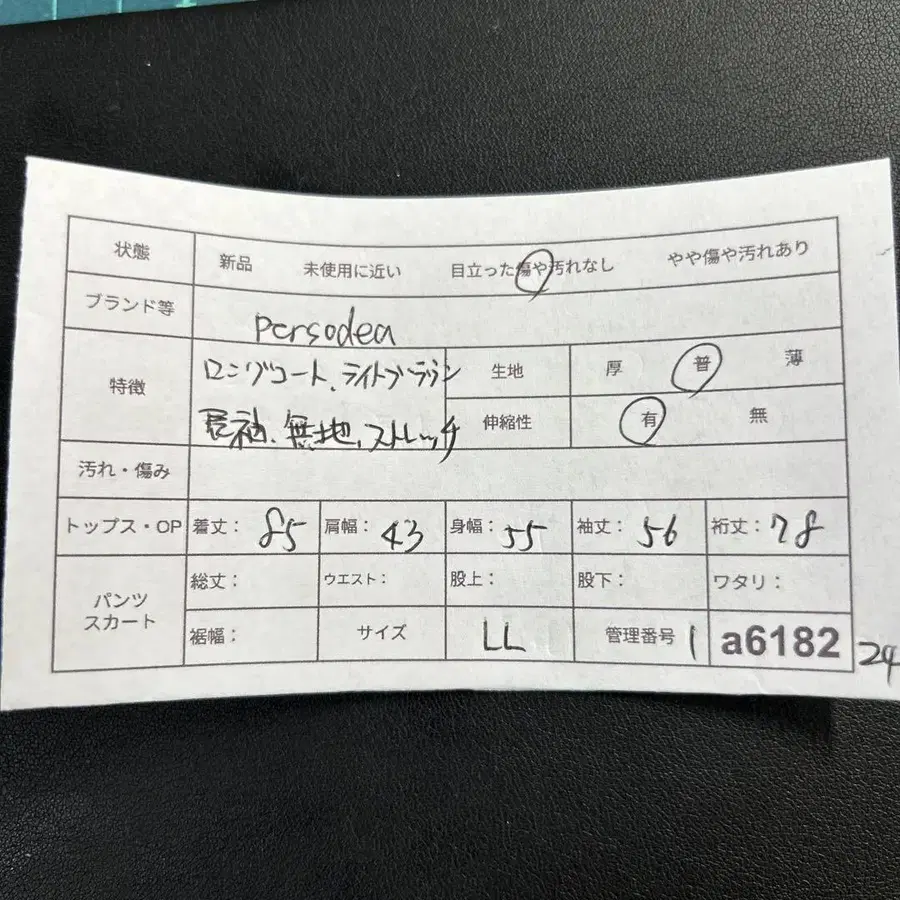 状態 新品 未使用に近い 目立った傷や汚れなし やや傷や汚れあり
ブランド等 persodea
特徴 ロングコート、ライトブラウン 生地 厚 普 薄
長袖、無地、ストレッチ 伸縮性 有 無
汚れ・傷み
トップス・OP 着丈: 85 肩幅: 43 身幅: 55 袖丈: 56 裄丈: 78
パンツ スカート 総丈: ウエスト: 股上: 股下: ワタリ:
裾幅: サイズ LL 管理番号 1 a6182 24